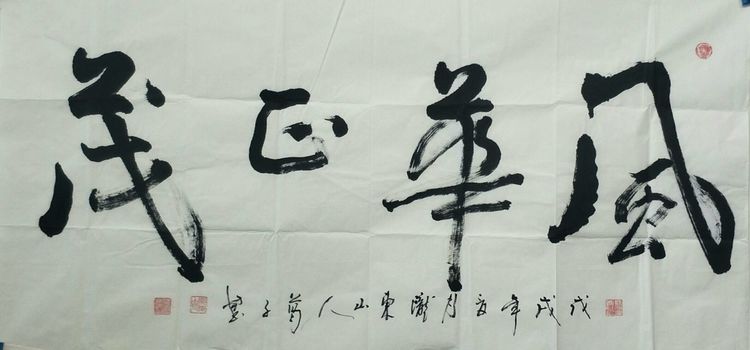 風華正茂
戊戌年夏月隴東山人萬子書